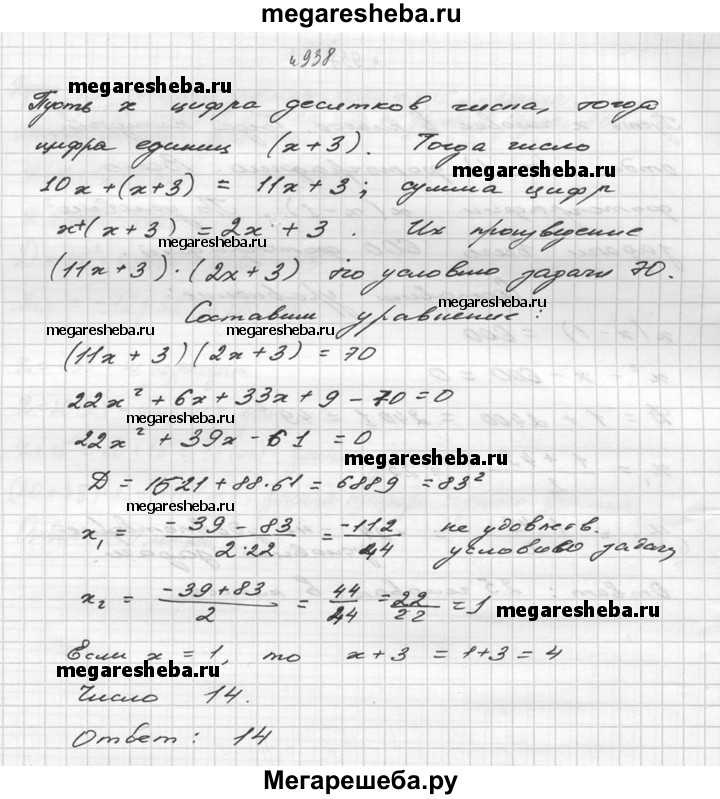 megaresheba.ru
№938
megaresheba.ru
Пусть x цифра десятков числа, тогда
цифра единиц (x+3). Тогда число
megaresheba.ru
10x+(x+3) = 11x+3; сумма цифр
x+(x+3) = 2x+3. Их произведение
megaresheba.ru
(11x+3)·(2x+3) по условию задачи 70.
Составим уравнение:
megaresheba.ru megaresheba.ru
(11x+3)(2x+3) = 70
22x²+6x+33x+9-70=0
megaresheba.ru
22x²+39x-61=0
megaresheba.ru
D = 1521+88·61 = 6889 = 83²
x₁ = -39-83 / 2·22 = -112 / 44 не удовлетв. условию задачи
megaresheba.ru
x₂ = -39+83 / 2 = 44 / 44 = 22 / 22 = 1 megaresheba.ru
Если x = 1, то x+3 = 1+3 = 4
megaresheba.ru
Число 14.
Ответ: 14
Мегарешеба.ру